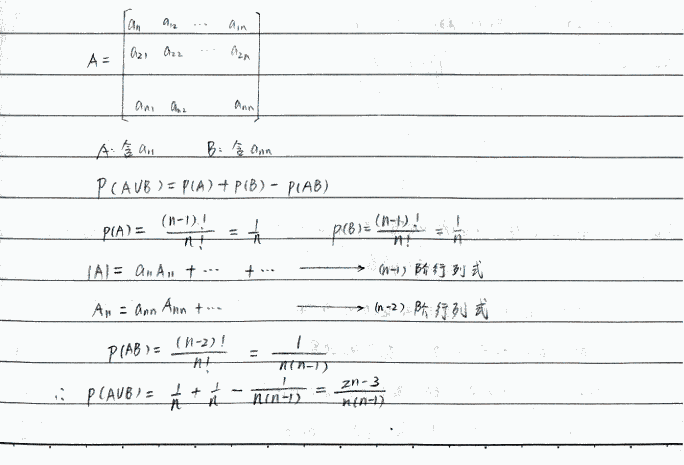 A = [ a₁₁ a₁₂ ⋯ a₁ₙ
a₂₁ a₂₂ ⋯ a₂ₙ
aₙ₁ aₙ₂ aₙₙ ]
A: 含 a₁₁ B: 含 aₙₙ
P(A∪B) = P(A) + P(B) - P(AB)
P(A) = (n-1)!/n! = 1/n P(B) = (n-1)!/n! = 1/n
|A| = a₁₁A₁₁ + ⋯ + ⋯ ⟶ (n-1) 阶行列式
A₁₁ = aₙₙAₙₙ + ⋯ ⟶ (n-2) 阶行列式
P(AB) = (n-2)!/n! = 1/n(n-1)
∴ P(A∪B) = 1/n + 1/n - 1/n(n-1) = 2n-3/n(n-1)